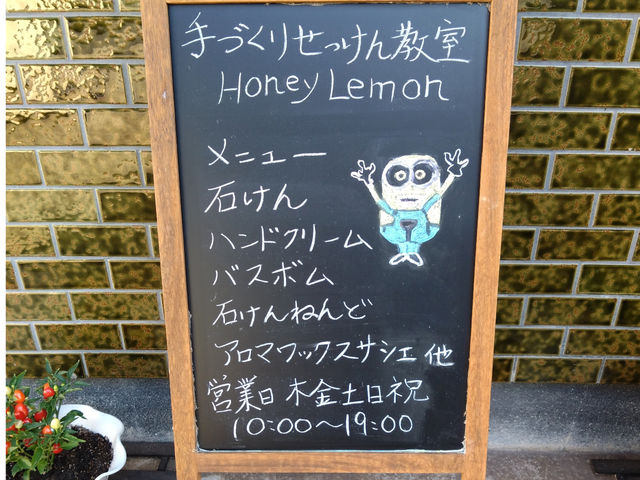 手づくりせっけん教室
Honey Lemon
メニュー
石けん
ハンドクリーム
バスボム
石けんねんど
アロマワックスサシェ 他
営業日 木金土日祝
10:00～19:00